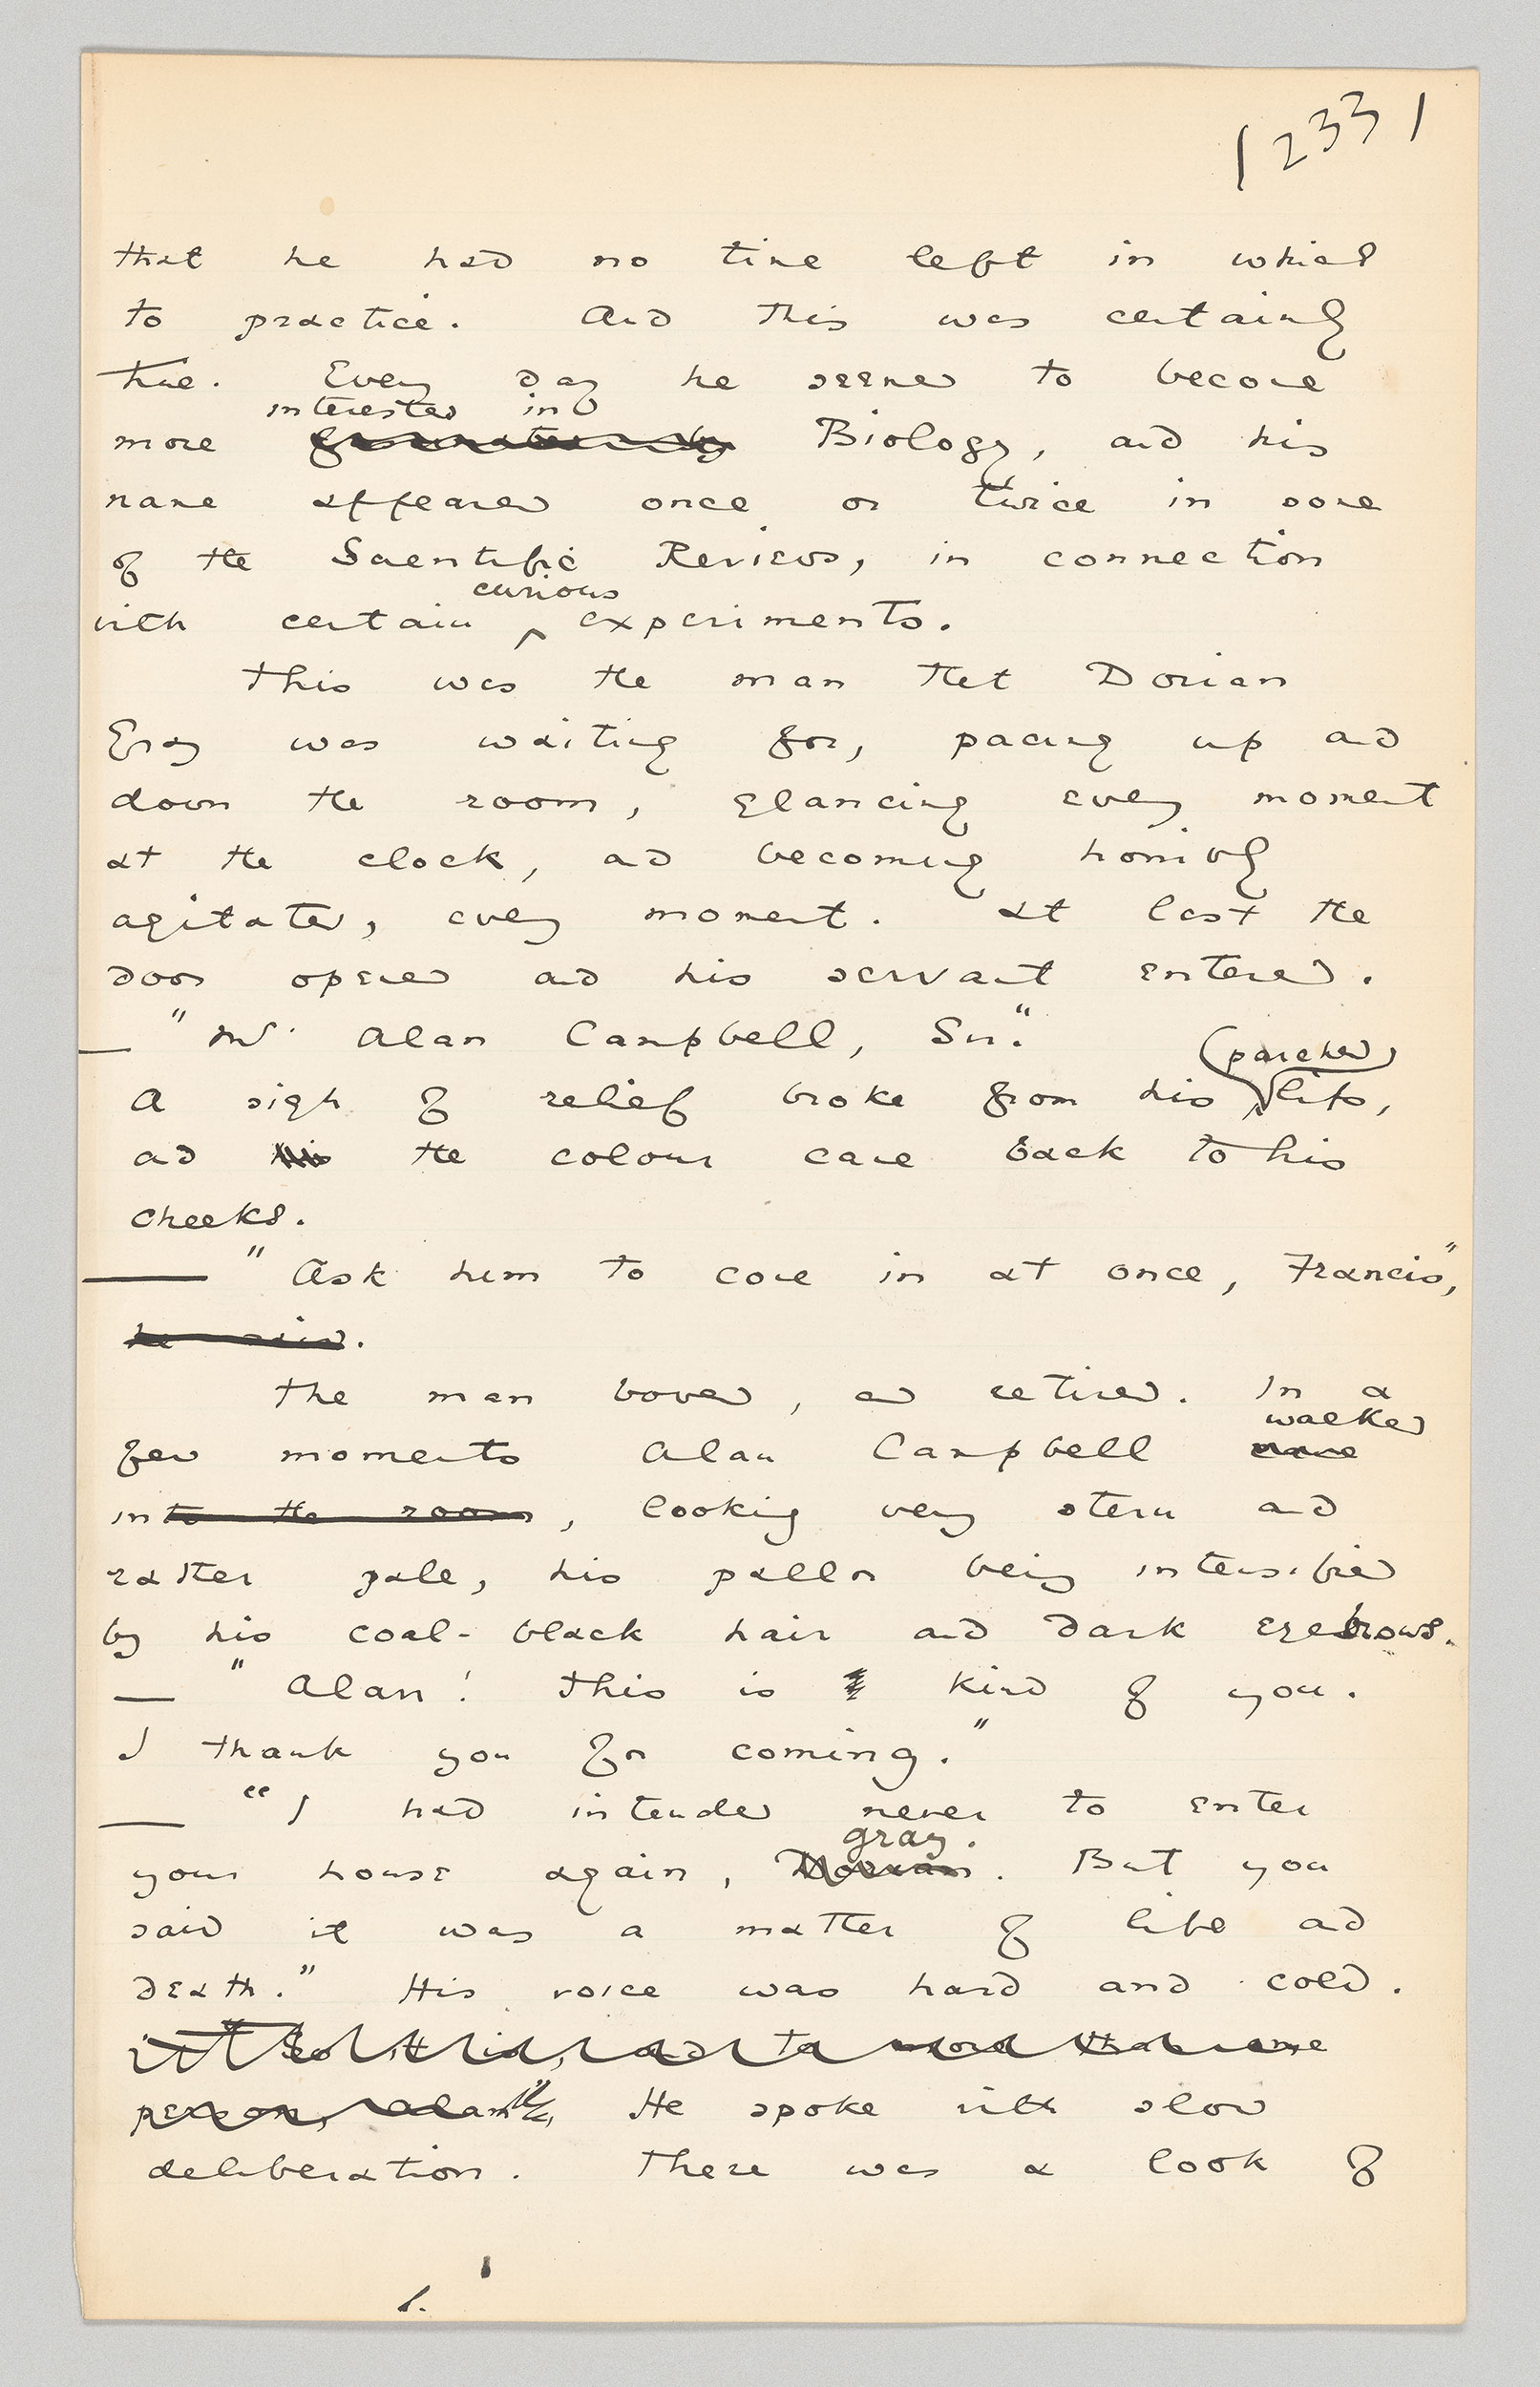 233
that he had no time left in which
to practice. And this was certainly
true. Every day he seemed to become
interested in
more Biology, and his
name appeared once or twice in some
of the Scientific Reviews, in connection
curious
with certain ^ experiments.
This was the man that Dorian
Gray was waiting for, pacing up and
down the room, glancing every moment
at the clock, and becoming horribly
agitated, every moment. At last the
door opened and his servant entered.
— "Mr Alan Campbell, Sir."
(parched)
A sigh of relief broke from his lips,
and his the colour came back to his
cheeks.
— "Ask him to come in at once, Francis",
he said.
The man bowed, and retired. In a
walked
few moments Alan Campbell came
into the room, looking very stern and
rather pale, his pallor being intensified
by his coal-black hair and dark eyebrows.
— "Alan! This is kind of you.
I thank you for coming."
— "I had intended never to enter
gray.
your house again, Dorian. But you
said it was a matter of life and
death." His voice was hard and cold.
person, Alan", He spoke with slow
deliberation. There was a look of